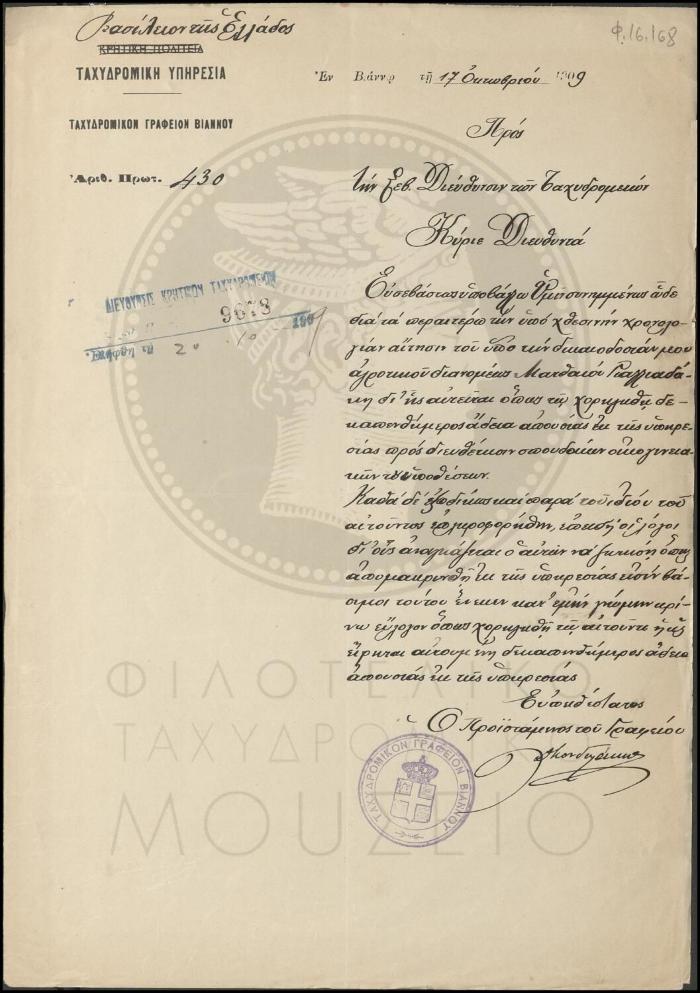 Βασίλειον τῆς Ἑλλάδος
ΚΡΗΤΙΚΗ ΠΟΛΙΤΕΙΑ
ΤΑΧΥΔΡΟΜΙΚΗ ΥΠΗΡΕΣΙΑ
ΤΑΧΥΔΡΟΜΙΚΟΝ ΓΡΑΦΕΙΟΝ ΒΙΑΝΝΟΥ
Ἀριθ. Πρωτ. 430
Φ.16.168
Ἐν Βιάννῳ τῇ 17 Ὀκτωβρίου 1909
Πρός
τὴν Σεβ. Διεύθυνσιν τῶν Ταχυδρομείων
Κύριε Διευθυντά
ΔΙΕΥΘΥΝΣΙΣ ΚΡΗΤΙΚΩΝ ΤΑΧΥΔΡΟΜΕΙΩΝ
9673
20 10 190
Εὐσεβάστως ὑποβάλλω Ὑμῖν συνημμένως ὧδε
διὰ τὰ περαιτέρω τὴν ὑπὸ χθεσινὴν χρονολο
γίαν αἴτησιν τοῦ ὑπὸ τὴν δικαιοδοσίαν μου
ἀγροτικοῦ διανομέως Ματθαίου
δι' ἧς αἰτεῖται ὅπως τῷ χορηγηθῇ δε-
καπενθήμερος ἄδεια ἀπουσίας ἐκ τῆς ὑπηρε
σίας πρὸς διευθέτησιν σπουδαίων οἰκογενεια
κῶν του ὑποθέσεων.
Καθὰ δὲ καὶ παρὰ τοῦ ἰδίου τοῦ
αἰτοῦντος ἐπληροφορήθην, ἐπειδὴ οἱ λόγοι
δι' οὓς ἀναγκάζεται ὁ αἰτῶν νὰ ζητήσῃ ὅπως
ἀπομακρυνθῇ ἐκ τῆς ὑπηρεσίας εἰσὶν βά
σιμοι τούτου ἕνεκεν κατ' ἐμὴν γνώμην κρί
νω εὔλογον ὅπως χορηγηθῇ τῷ αἰτοῦντι ἡ ὡς
εἴρηται αἰτουμένη δεκαπενθήμερος ἄδεια
ἀπουσίας ἐκ τῆς ὑπηρεσίας
Εὐπειθέστατος
Ὁ Προϊστάμενος τοῦ Γραφείου
ΤΑΧΥΔΡΟΜΙΚΟΝ ΓΡΑΦΕΙΟΝ ΒΙΑΝΝΟΥ
ΦΙΛΟΤΕΛΙΚΟ
ΤΑΧΥΔΡΟΜΙΚΟ
ΜΟΥΣΕΙΟ